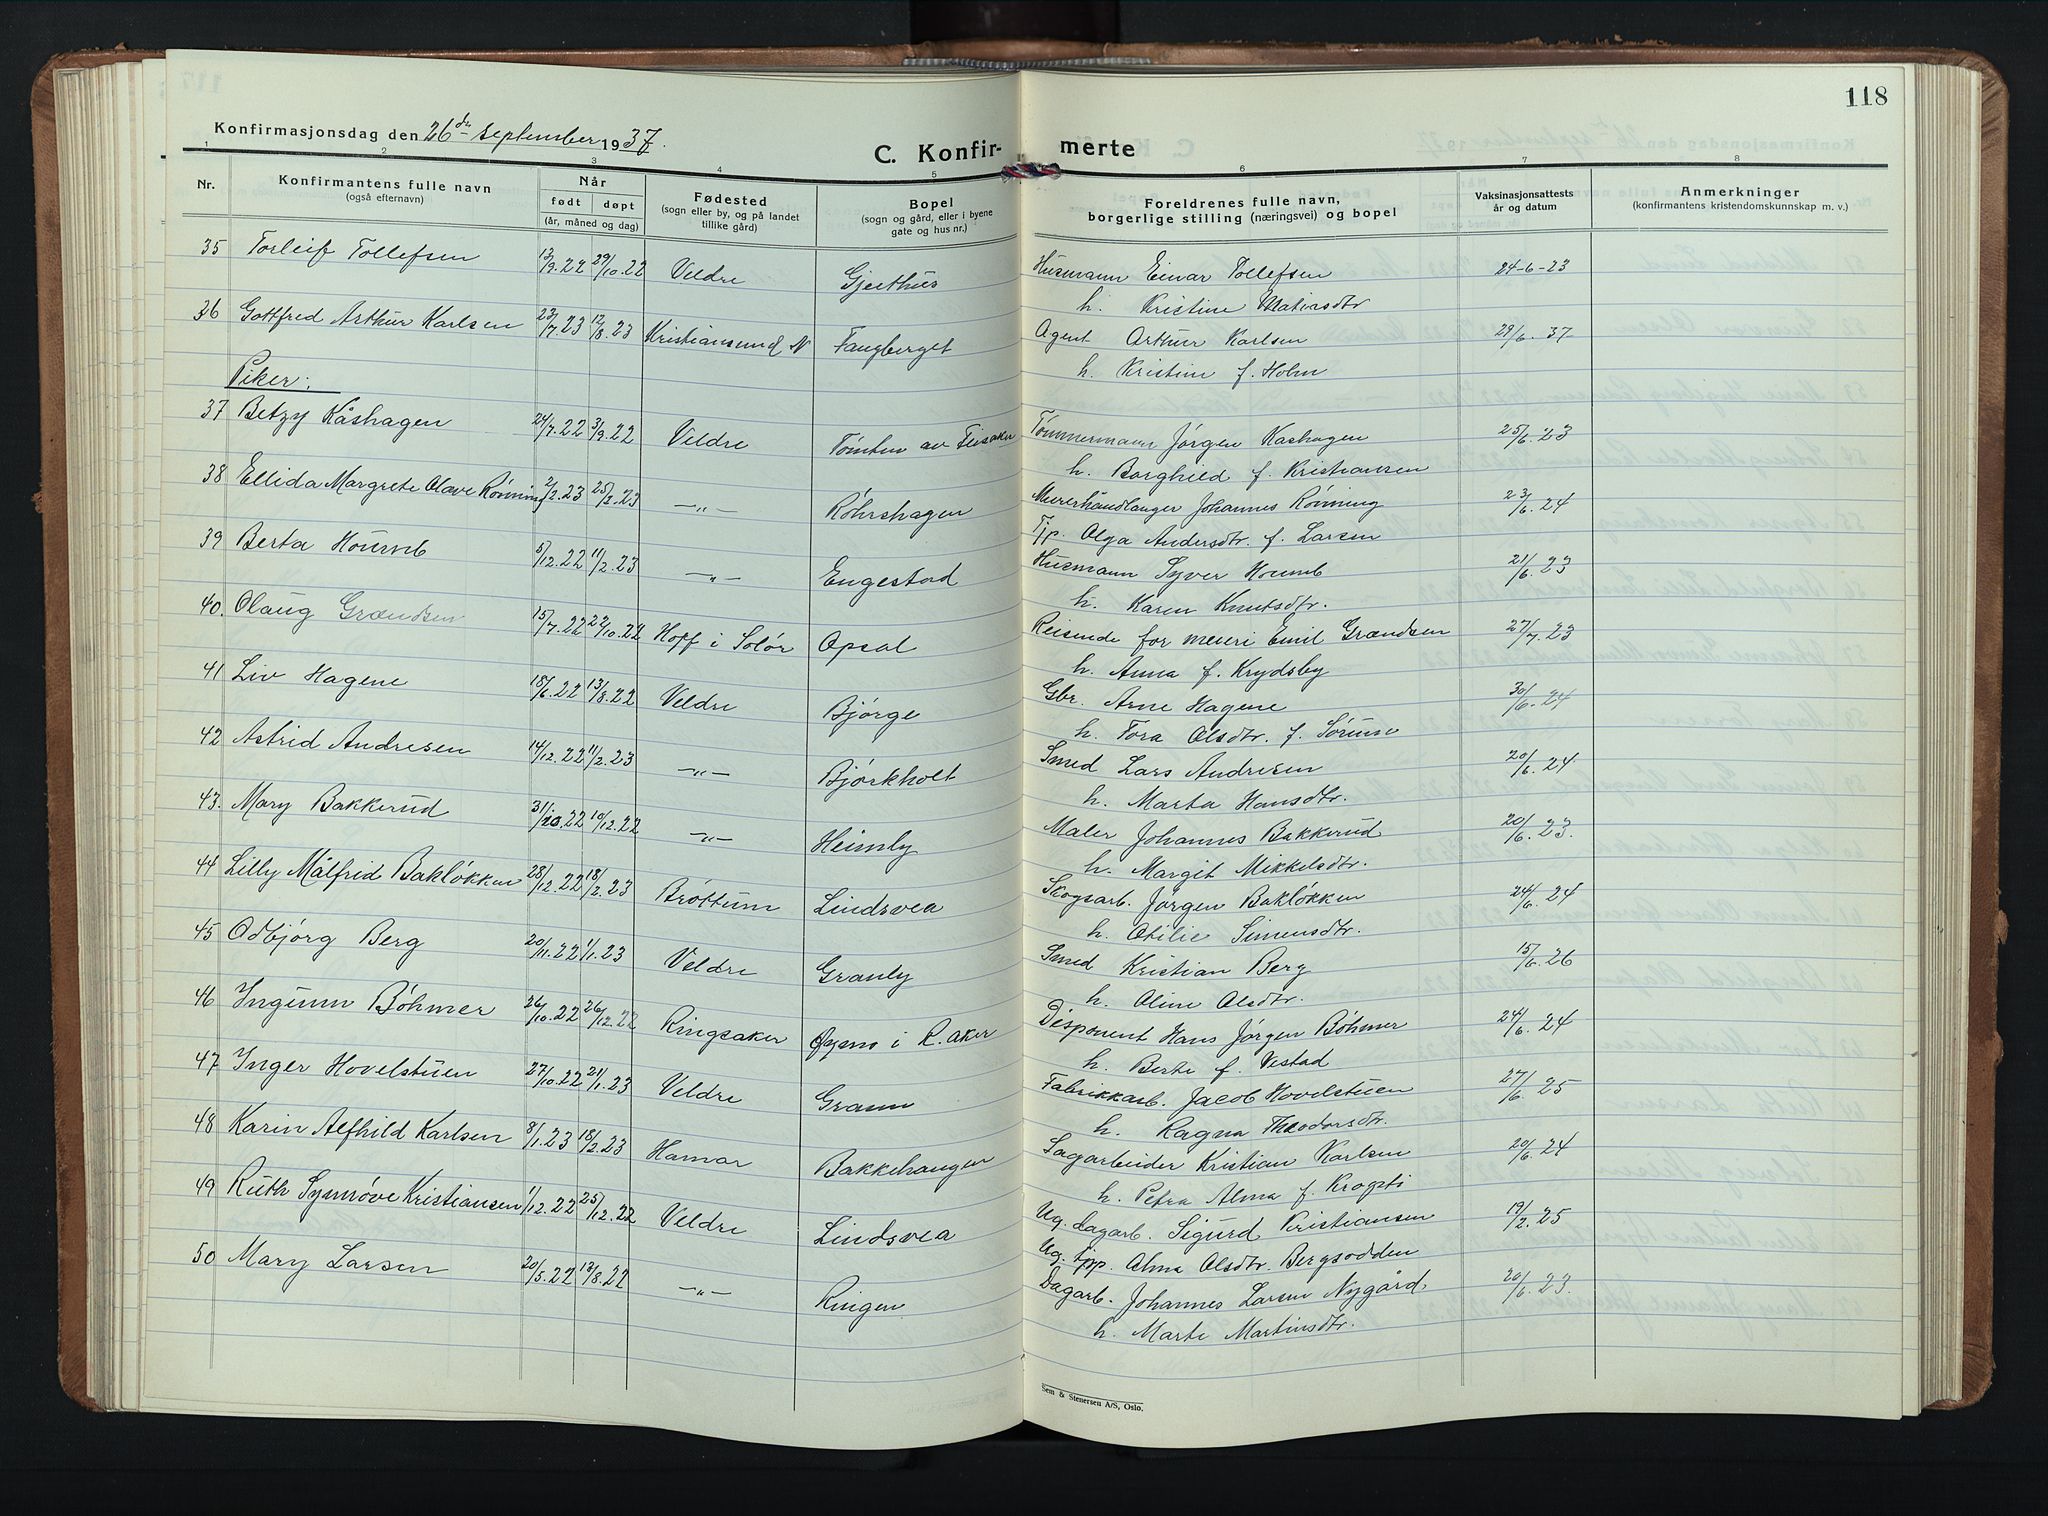 118
Konfirmasjonsdag den 26de september 1937.
C. Konfirmerte
1 2 3 4 5 6 7 8
Nr. Konfirmantens fulle navn (også efternavn) Når født døpt (år, måned og dag) Fødested (sogn eller by, og på landet tillike gård) Bopel (sogn og gård, eller i byene gate og hus nr.) Foreldrenes fulle navn, borgerlige stilling (næringsvei) og bopel Vaksinasjonsattests år og datum Anmerkninger (konfirmantens kristendomskunnskap m. v.)
35 Torleif Tollefsen 13/9.22 29/10.22 Veldre Gjerthus Husmann Einar Tollefsen 24-6-23
h. Kristine
36 Gottfred Arthur Karlsen 23/7.23 12/8.23 Kristiansund N Fangberget Agent Arthur Karlsen 29/6.37
h. Kristine f. Holm
Piker:
37 Betzy Kåshagen 24/7.22 3/9.22 Veldre Tømten av Tømmermann Jørgen Kashagen 25/6.23
h. Borghild f. Kristiansen
38 Ellida Margrete Olave Rønning 2/2.23 25/3.23 —"— Røhrshagen Murerhåndlanger Johannes Rønning 23/6.24
Tjp. Olga Andersdtr. f. Larsen
39 Berta Houmb 5/12.22 11/2.23 —"— Engestad Husmann Syver Houmb 21/6.23
h. Karen Knutsdtr.
40. Olaug Grændsen 15/7.22 22/10.22 Hoff i Solør Opsal Reisende for meieri Emil Grændsen 27/7.23
h. Anna f. Krydsby
41 Liv Hagene 18/6.22 13/8.22 Veldre Bjørge Gbr. Arne Hagene 30/6.24
h. Tora Olsdtr. f.
42 Astrid Andresen 14/12.22 11/2.23 —"— Bjørkholt Smed Lars Andresen 20/6.24
h. Marta Hansdtr.
43. Mary Bakkerud 31/10.22 10/12.22 —"— Heimly Maler Johannes Bakkerud 20/6.23.
h. Margit Mikkelsdtr.
44 Lilly Målfrid Bakløkken 28/12.22 18/2.23 Brøttum Lindsvea Skogsarb. Jørgen Bakløkken 24/6.24
h. Otilie Simensdtr.
45 Odbjørg Berg 20/11.22 1/1.23 Veldre Granly Smed Kristian Berg 15/6.26
h. Oline Olsdtr.
46 Ingunn Bøhmer 26/10.22 26/12.22 Ringsaker i R.aker Disponent Hans Jørgen Bøhmer 24/6.24
h. Berte f. Vestad
47 Inger Hovelstuen 27/10.22 21/1.23 Veldre Grann Fabrikkarb. Jacob Hovelstuen 27/6.25
h. Ragna Theodorsdtr.
48 Karin Alfhild Karlsen 8/1.23 18/2.23 Hamar Bakkehaugen Sagarbeider Kristian Karlsen 20/6.24
h. Petra Alma f.
49 Ruth Synnøve Kristiansen 1/12.22 25/12.22 Veldre Lindsvea Ug. dagarb. Sigurd Kristiansen 19/2.25
Ug. tjp. Alma Olsdtr. Bergsodden
50 Mary Larsen 20/5.22 13/8.22 —"— Ringen Dagarb. Johannes Larsen Nygård. 20/6.23.
h. Marte Martinsdtr.
Sem & Stenersen A/S, Oslo.